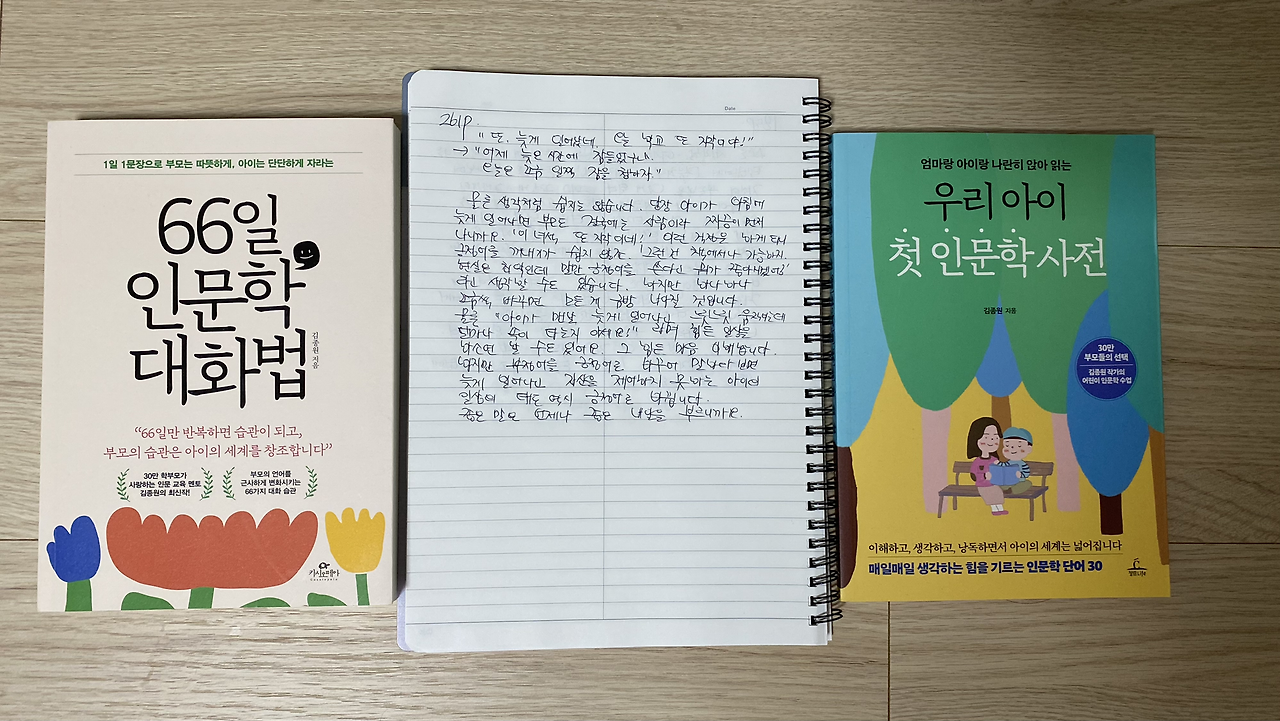 1일 1문장으로 부모는 따뜻하게, 아이는 단단하게 자라는
66일
인문학
대화법
김종원 지음
“66일만 반복하면 습관이 되고,
부모의 습관은 아이의 세계를 창조합니다”
30만 학부모가
사랑하는 인문 교육 멘토
김종원의 최신작!
부모의 언어를
근사하게 변화시키는
66가지 대화 습관
카시오페아
Cassiopeia
Date
261p.
"또, 늦게 일어났네, 또 지각이야!"
→ "어제 늦은 시간에 잠들었구나.
오늘은 조금 일찍 잠을 청하자."
물론 생각처럼 쉽지는 않습니다. 일단 아이가 아침에
늦게 일어나면 부모도 사람이라 짜증이 먼저
나니까요. '이 녀석, 또 지각이네!' 이런 감정을
긍정어를 꺼내기가 쉽지 않죠. 그런 건 책에서나 가능하지.
현실은 최악인데 말만 긍정어를 쓴다고 뭐가
라고 생각할 수도 있습니다. 하지만 하나하나
조금씩 바꾸면 모든 게 금방 나아질 것입니다.
물론 "아이가 매일 늦게 일어나고
얼마나 속이 타는지 아세요!" 라며 힘든 일상을
수도 있어요. 그 힘든 마음 이해합니다.
하지만 부정어를 긍정어로 바꾸어 말하다 보면
늦게 일어나고 자신을 제어하지 못하는 아이의
일상의 태도 역시 긍정적으로 바뀝니다.
좋은 말은 언제나 좋은 내일을 부르니까요.
엄마랑 아이랑 나란히 앉아 읽는
우리 아이
첫 인문학 사전
김종원 지음
30만
부모들의 선택
김종원 작가의
어린이 인문학 수업
이해하고, 생각하고, 낭독하면서 아이의 세계는 넓어집니다
매일매일 생각하는 힘을 기르는 인문학 단어 30